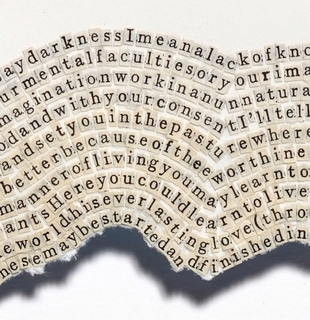 aydarknessImeanalackofkno
urmentalfacultiesoryourima
maginationworkinanunnatura
olandwithyourconsenI'lltell
andsetyouinthepastrewhere
betterbecauseoftheeworthine
manneroflivingyoumaylearnto
antsHereyoucouldlearntolive
eworldhiseverlastinglove(thro
hesemaybestartedandfinishedin